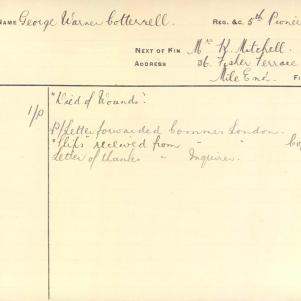 NAME George Warner Cotterrell. REG. &C. 5th Pionee
NEXT OF KIN Mrs K. Mitchell.
ADDRESS 36. Fisher Terrace
Mile End. F
"Died of Wounds".
1/P
P/Letter forwarded Commr London.
"Slips" received from " " Co
Letter of thanks " Inquirer.